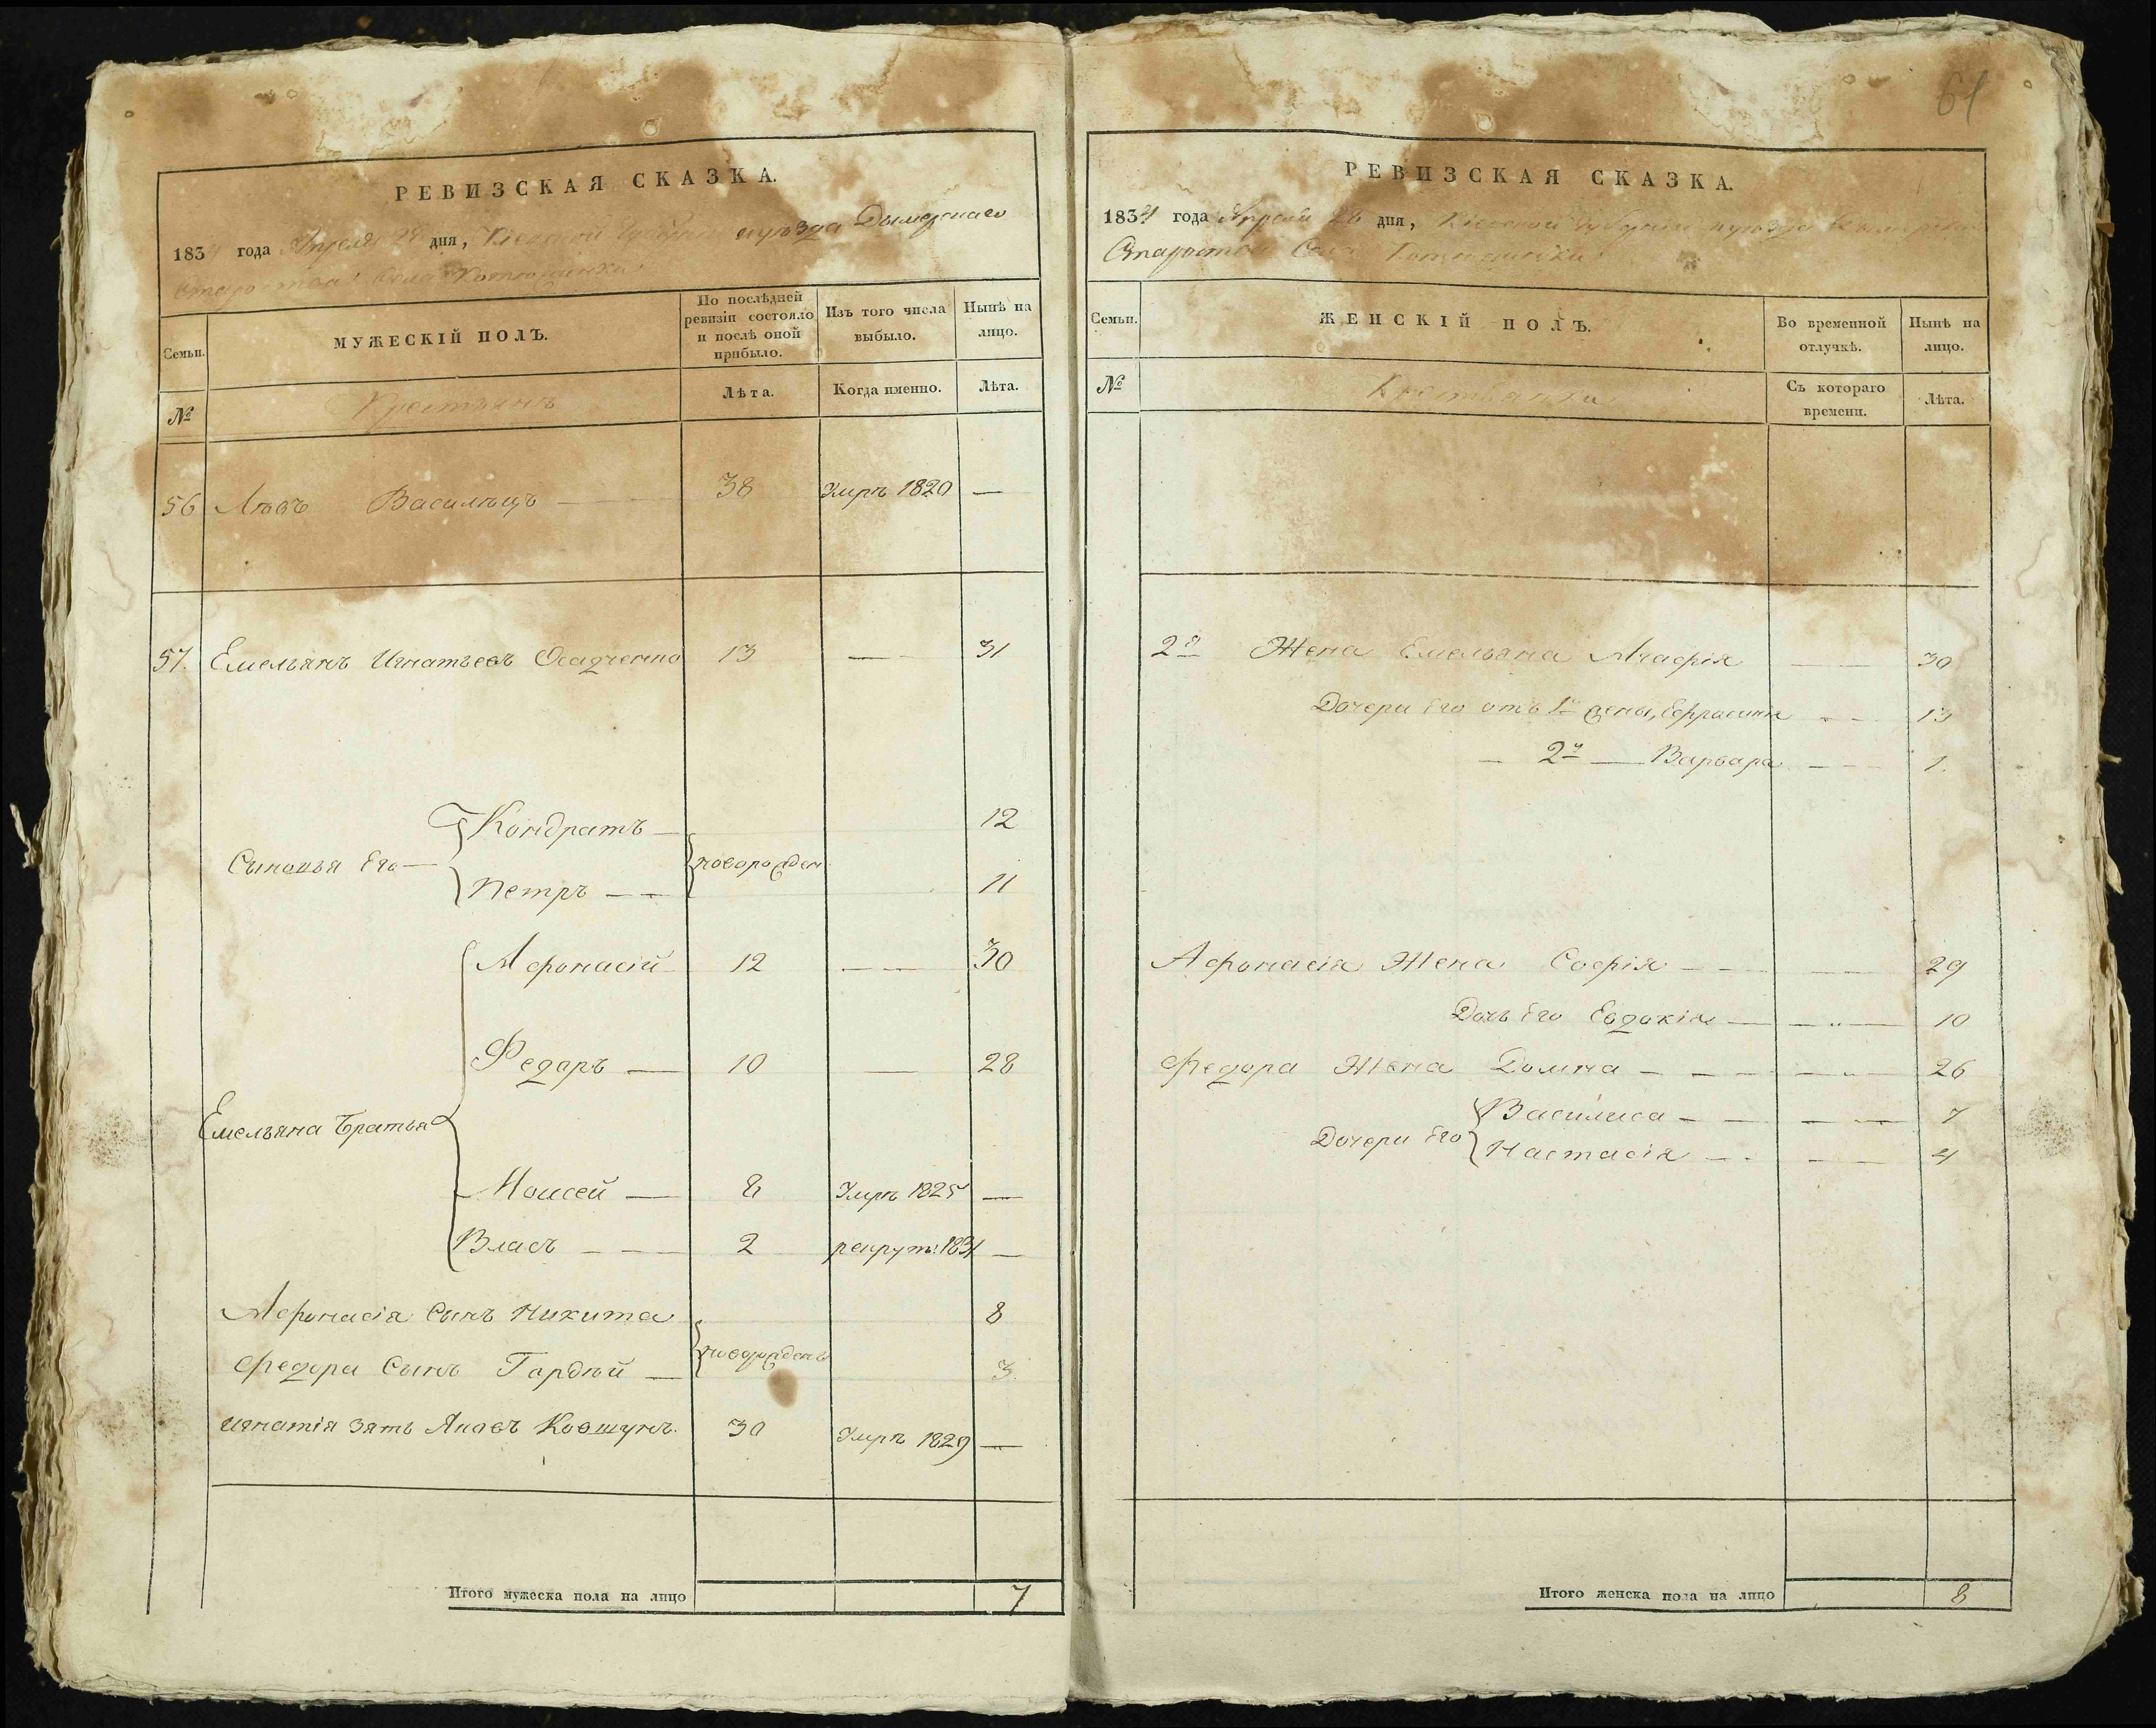 РЕВИЗСКАЯ СКАЗКА.
1834 года Апреля 28 дня, Кіевской Губерніи и уѣзда Дымерскаго
Староства Села
Семьи.
МУЖЕСКІЙ ПОЛЪ.
По послѣдней ревизіи состояло и послѣ оной прибыло.
Изъ того числа выбыло.
Нынѣ на лицо.
№
Крестьянъ
Лѣта.
Когда именно.
Лѣта.
56 Василѣцъ — 38 Умръ 1820 —
57. Емельянъ Игнатьевъ Осадченко 13 — 31
Сыновья Его — { Кондратъ — 12
{ новорожден
Петръ — — 11
Емельяна Братья { Афонасій 12 — — 30
Федоръ — 10 — 28
Моисей — 8 Умръ 1825 —
Власъ — — 2 рекрут: 1831 —
Афонасія Сынъ Никита 8
{ новорожденъ
Федора Сынъ Гордѣй — 3
Игнатія зять Яковъ Ковшунъ. 30 Умръ 1829 —
Итого мужеска пола на лицо 7
61
РЕВИЗСКАЯ СКАЗКА.
1834 года Апреля 28 дня, Кіевской Губерніи и уѣзда
Староства Села
Семьи.
ЖЕНСКІЙ ПОЛЪ.
Во временной отлучкѣ.
Нынѣ на лицо.
№
Крестьянки
Съ котораго времени.
Лѣта.
2я Жена Емельяна Агафія — — 30
Дочери Его отъ 1й жены, Ефросинія — — 13
— 2й — Варвара — — 1.
Афонасія Жена Софія — — — 29
Дочь Его Евдокія — — „ — 10
Федора Жена Домна — — — — „ — 26
Дочери Его { Василиса — — — — 7
Настасія — — — — 4
Итого женска пола на лицо 8